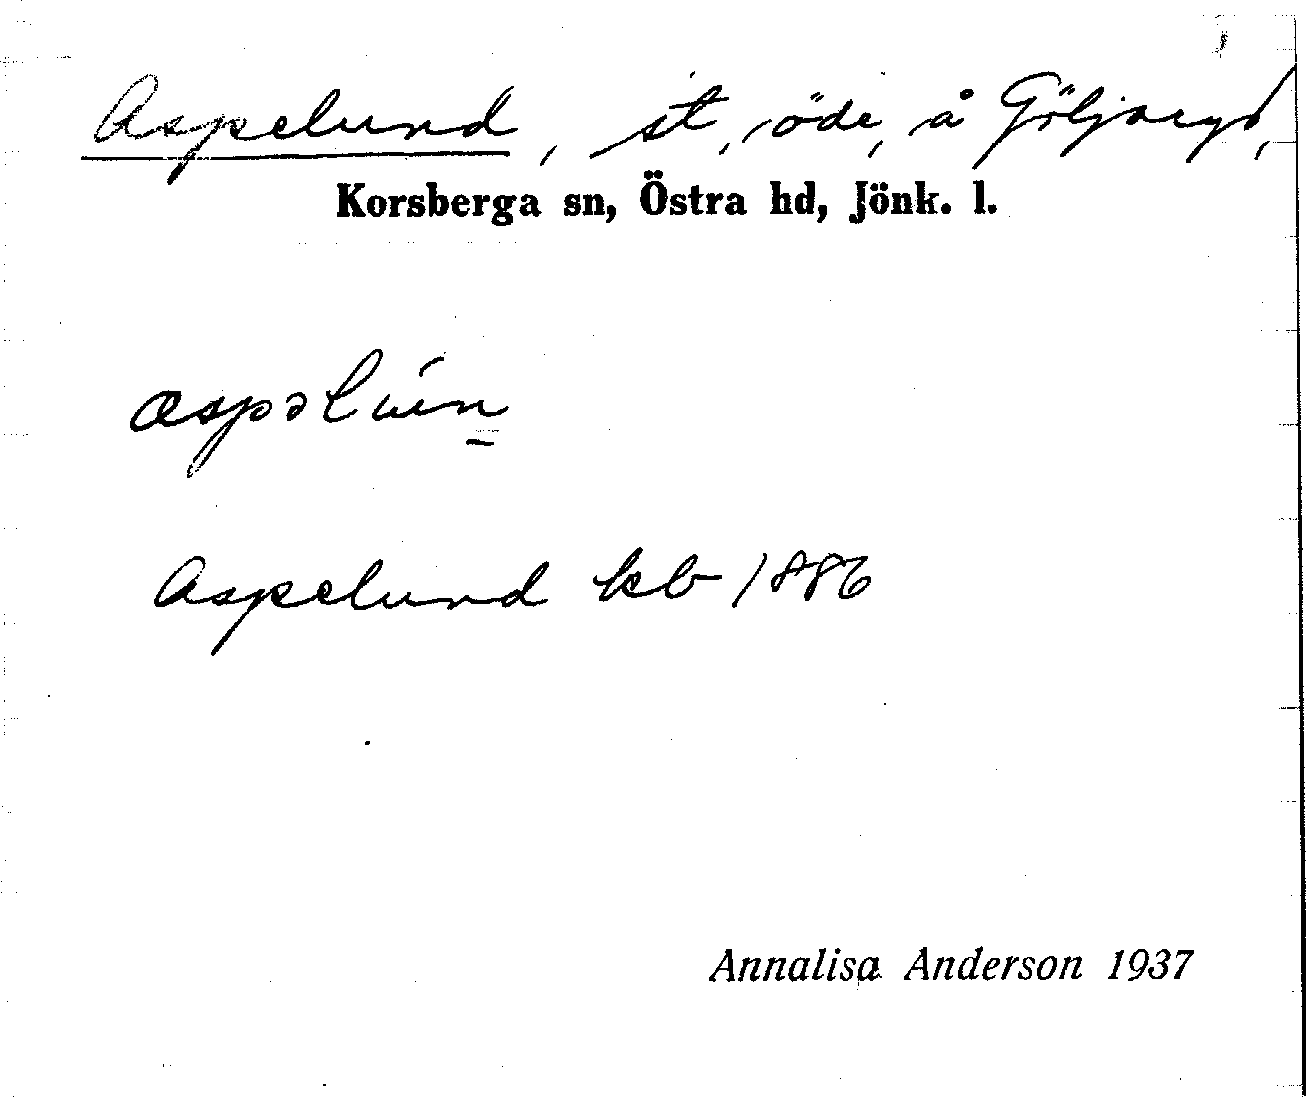 Aspelund, st, öde, å Göljaryd,
Korsberga sn, Östra hd, Jönk. l.
aspəlún
Aspelund kb 1886
Annalisa Anderson 1937